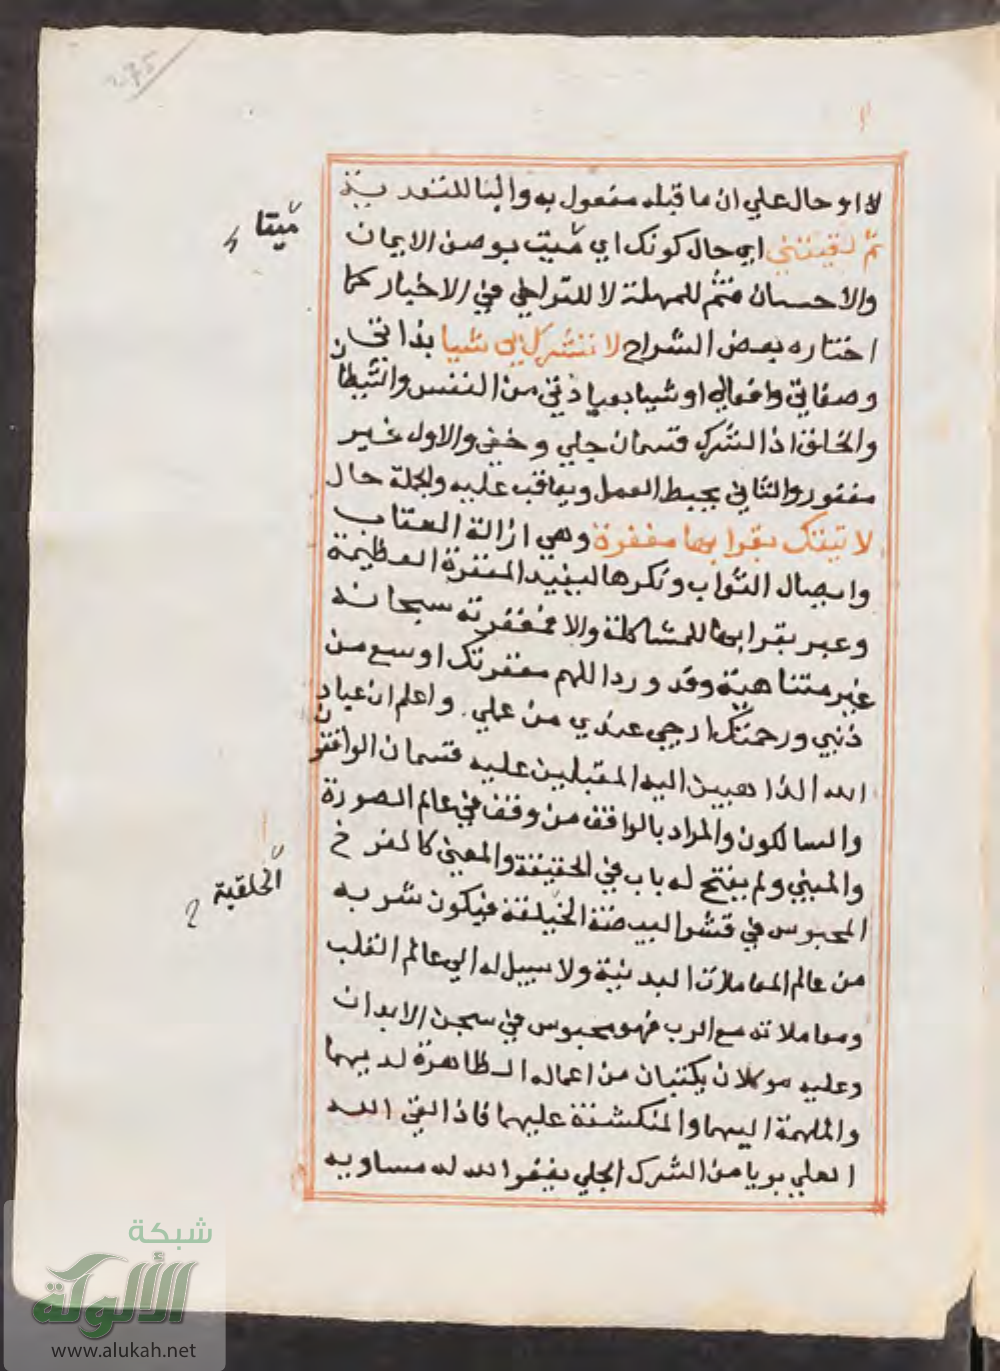 لا او حال علي ان ما قبله مفعول به والبا للتعدية
ثم لقيتني اي حال كونك اي ميت بوصف الايمان
والاحسان فثم للمهلة لا للتراخي في الاخبار كما
اختاره بعض الشراح لا تشرك بي شيا بذاتي
وصفاتي وافعالي او شيا بعياذتي من النفس والشيطان
والخلق اذ الشرك قسمان جلي وخفي والاول غير
مغفور والثاني يحيط العمل ويعاقب عليه والجملة حال
لاتيتك بقرابها مغفرة وهي ازالة العقاب
وايصال الثواب ونكرها ليفيد المغفرة العظيمة
وعبر بقرابها للمشاكلة والا فمغفرته سبحانه
غير متناهية وقد ورد اللهم مغفرتك اوسع من
ذنبي ورحمتك ارجي عندي من عملي. واعلم ان عباد
الله الذاهبين اليه المقبلين عليه قسمان الواقفون
والسالكون والمراد بالواقف من وقف في عالم الصورة
والمبني ولم يفتح له باب في الحقيقة والمعني كالفرخ
المحبوس في قشر البيضة الخيلقة فيكون شربه
من عالم المعاملات البدنية ولا سبيل له الي عالم القلب
ومعاملاته مع الرب فهو محبوس في سجن الابدان
وعليه موكلان يكتبان من اعماله الظاهرة لديهما
والملهمة اليهما والمنكشفة عليهما فاذا لقي الله
العلي بريا من الشرك الجلي يغفر الله له مساويه
ميتا
الخلقية
شبكة
الألوكة
www.alukah.net